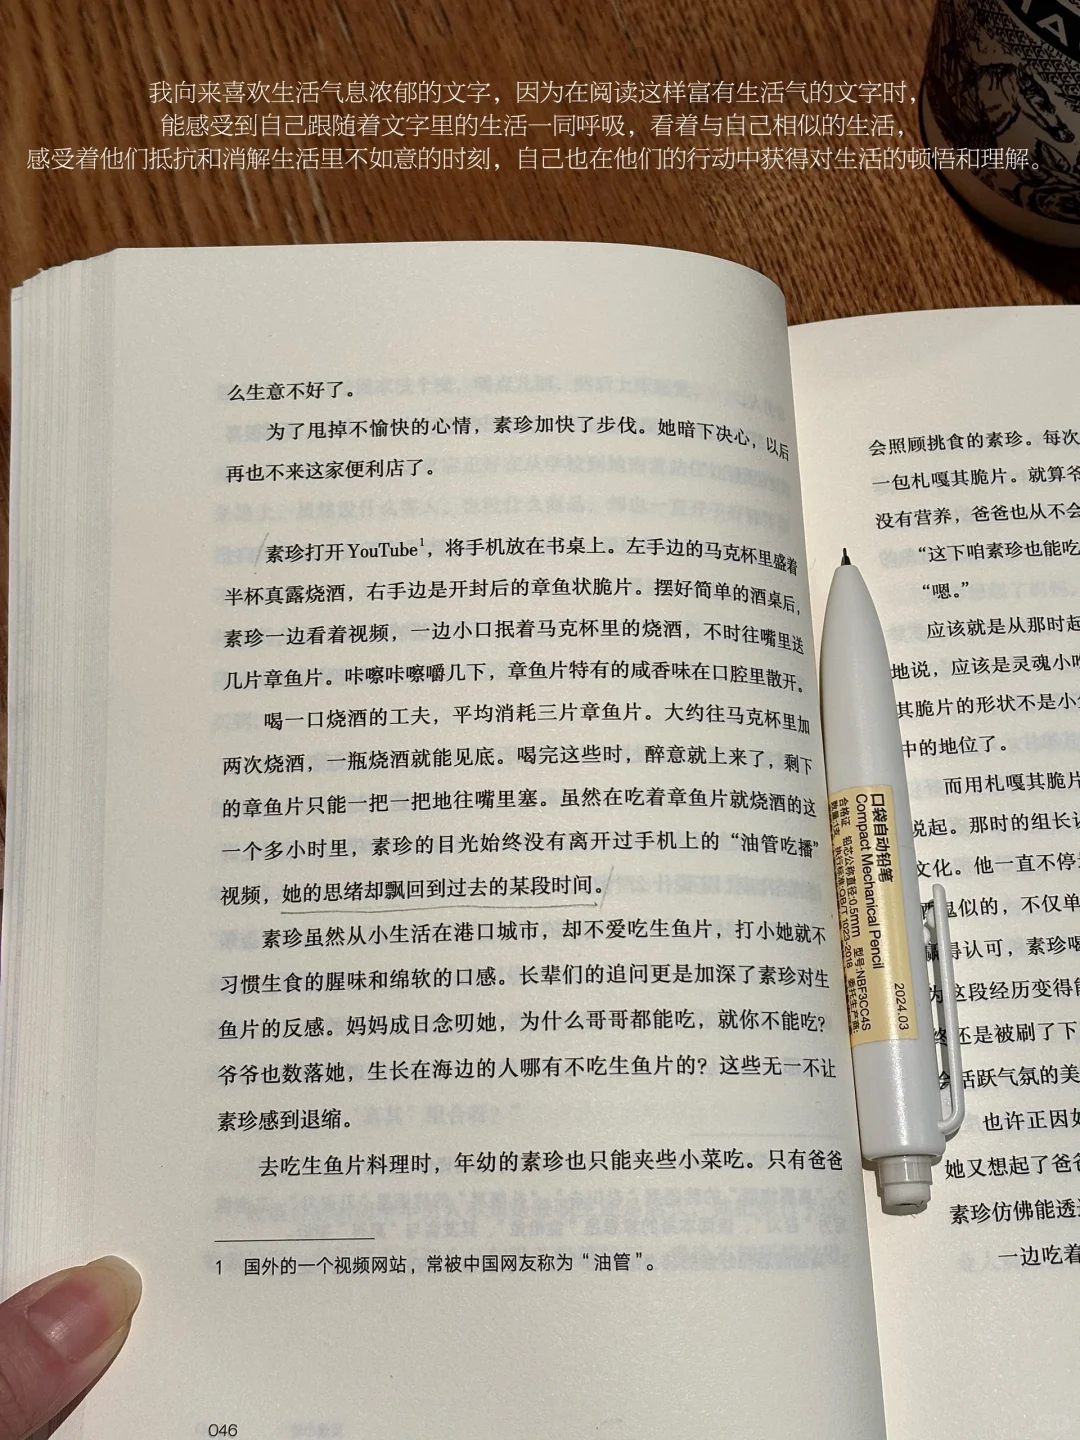 我向来喜欢生活气息浓郁的文字，因为在阅读这样富有生活气的文字时，
能感受到自己跟随着文字里的生活一同呼吸，看着与自己相似的生活，
感受着他们抵抗和消解生活里不如意的时刻，自己也在他们的行动中获得对生活的顿悟和理解。
么生意不好了。
为了甩掉不愉快的心情，素珍加快了步伐。她暗下决心，以后
再也不来这家便利店了。
素珍打开YouTube1，将手机放在书桌上。左手边的马克杯里盛着
半杯真露烧酒，右手边是开封后的章鱼状脆片。摆好简单的酒桌后，
素珍一边看着视频，一边小口抿着马克杯里的烧酒，不时往嘴里送
几片章鱼片。咔嚓咔嚓嚼几下，章鱼片特有的咸香味在口腔里散开。
喝一口烧酒的工夫，平均消耗三片章鱼片。大约往马克杯里加
两次烧酒，一瓶烧酒就能见底。喝完这些时，醉意就上来了，剩下
的章鱼片只能一把一把地往嘴里塞。虽然在吃着章鱼片就烧酒的这
一个多小时里，素珍的目光始终没有离开过手机上的“油管吃播”
视频，她的思绪却飘回到过去的某段时间。
素珍虽然从小生活在港口城市，却不爱吃生鱼片，打小她就不
习惯生食的腥味和绵软的口感。长辈们的追问更是加深了素珍对生
鱼片的反感。妈妈成日念叨她，为什么哥哥都能吃，就你不能吃？
爷爷也数落她，生长在海边的人哪有不吃生鱼片的？这些无一不让
素珍感到退缩。
去吃生鱼片料理时，年幼的素珍也只能夹些小菜吃。只有爸爸
1 国外的一个视频网站，常被中国网友称为“油管”。
046
会照顾挑食的素珍。每次
一包札嘎其脆片。就算爷
没有营养，爸爸也从不会
“这下咱素珍也能吃
“嗯。”
应该就是从那时起
地说，应该是灵魂小吃
其脆片的形状不是小
中的地位了。
而用札嘎其脆片
说起。那时的组长认
文化。他一直不停
鬼似的，不仅单
赢得认可，素珍喝
为这段经历变得
终还是被刷了下
活跃气氛的美
也许正因如
她又想起了爸爸
素珍仿佛能透
一边吃着
口袋自动铅笔
Compact Mechanical Pencil
合格证 铅芯公称直径:0.5mm 型号:NBF3CC4S
数量:1支 执行标准:QB/T 1023-2018 委托生产商:
2024.03